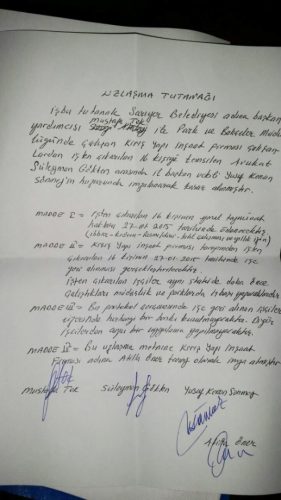 UZLAŞMA TUTANAĞI
İşbu tutanak Sarıyer Belediyesi adına başkan
yardımcısı Mustafa Tok ile Park ve Bahçeler Müdür
lüğünde çalışan Kiriş Yapı inşaat firması çalışan
larından işten çıkarılan 16 kişiyi temsilen Avukat
Süleyman Gökten arasında il başkan vekili Yusuf Kenan
Sönmez'in huzurunda imzalanarak karar alınmıştır.
MADDE I = İşten çıkarılan 16 kişinin yasal tazminat
hakları 27-01-2015 tarihinde ödenecektir
MADDE II = Kiriş Yapı inşaat firması tarafından işten
çıkarılan 16 kişinin 27-01-2015 tarihinde işe
geri alınması gerçekleştirilecektir.
İşten çıkarılan işçiler aynı statüde daha önce
çalıştıkları müdürlük ve parklarda işbaşı yapacaklardır
MADDE III = Bu protokol çerçevesinde işe geri alınan işçiler
içerisinde herhangi bir
işçilerden ayrı bir uygulama yapılmayacaktır.
MADDE IV = Bu uzlaşma metnine Kiriş Yapı inşaat
Firması adına Atilla Öner taraf olarak imza atmıştır
Mustafa Tok Süleyman Gökten Yusuf Kenan Sönmez
Atilla Öner